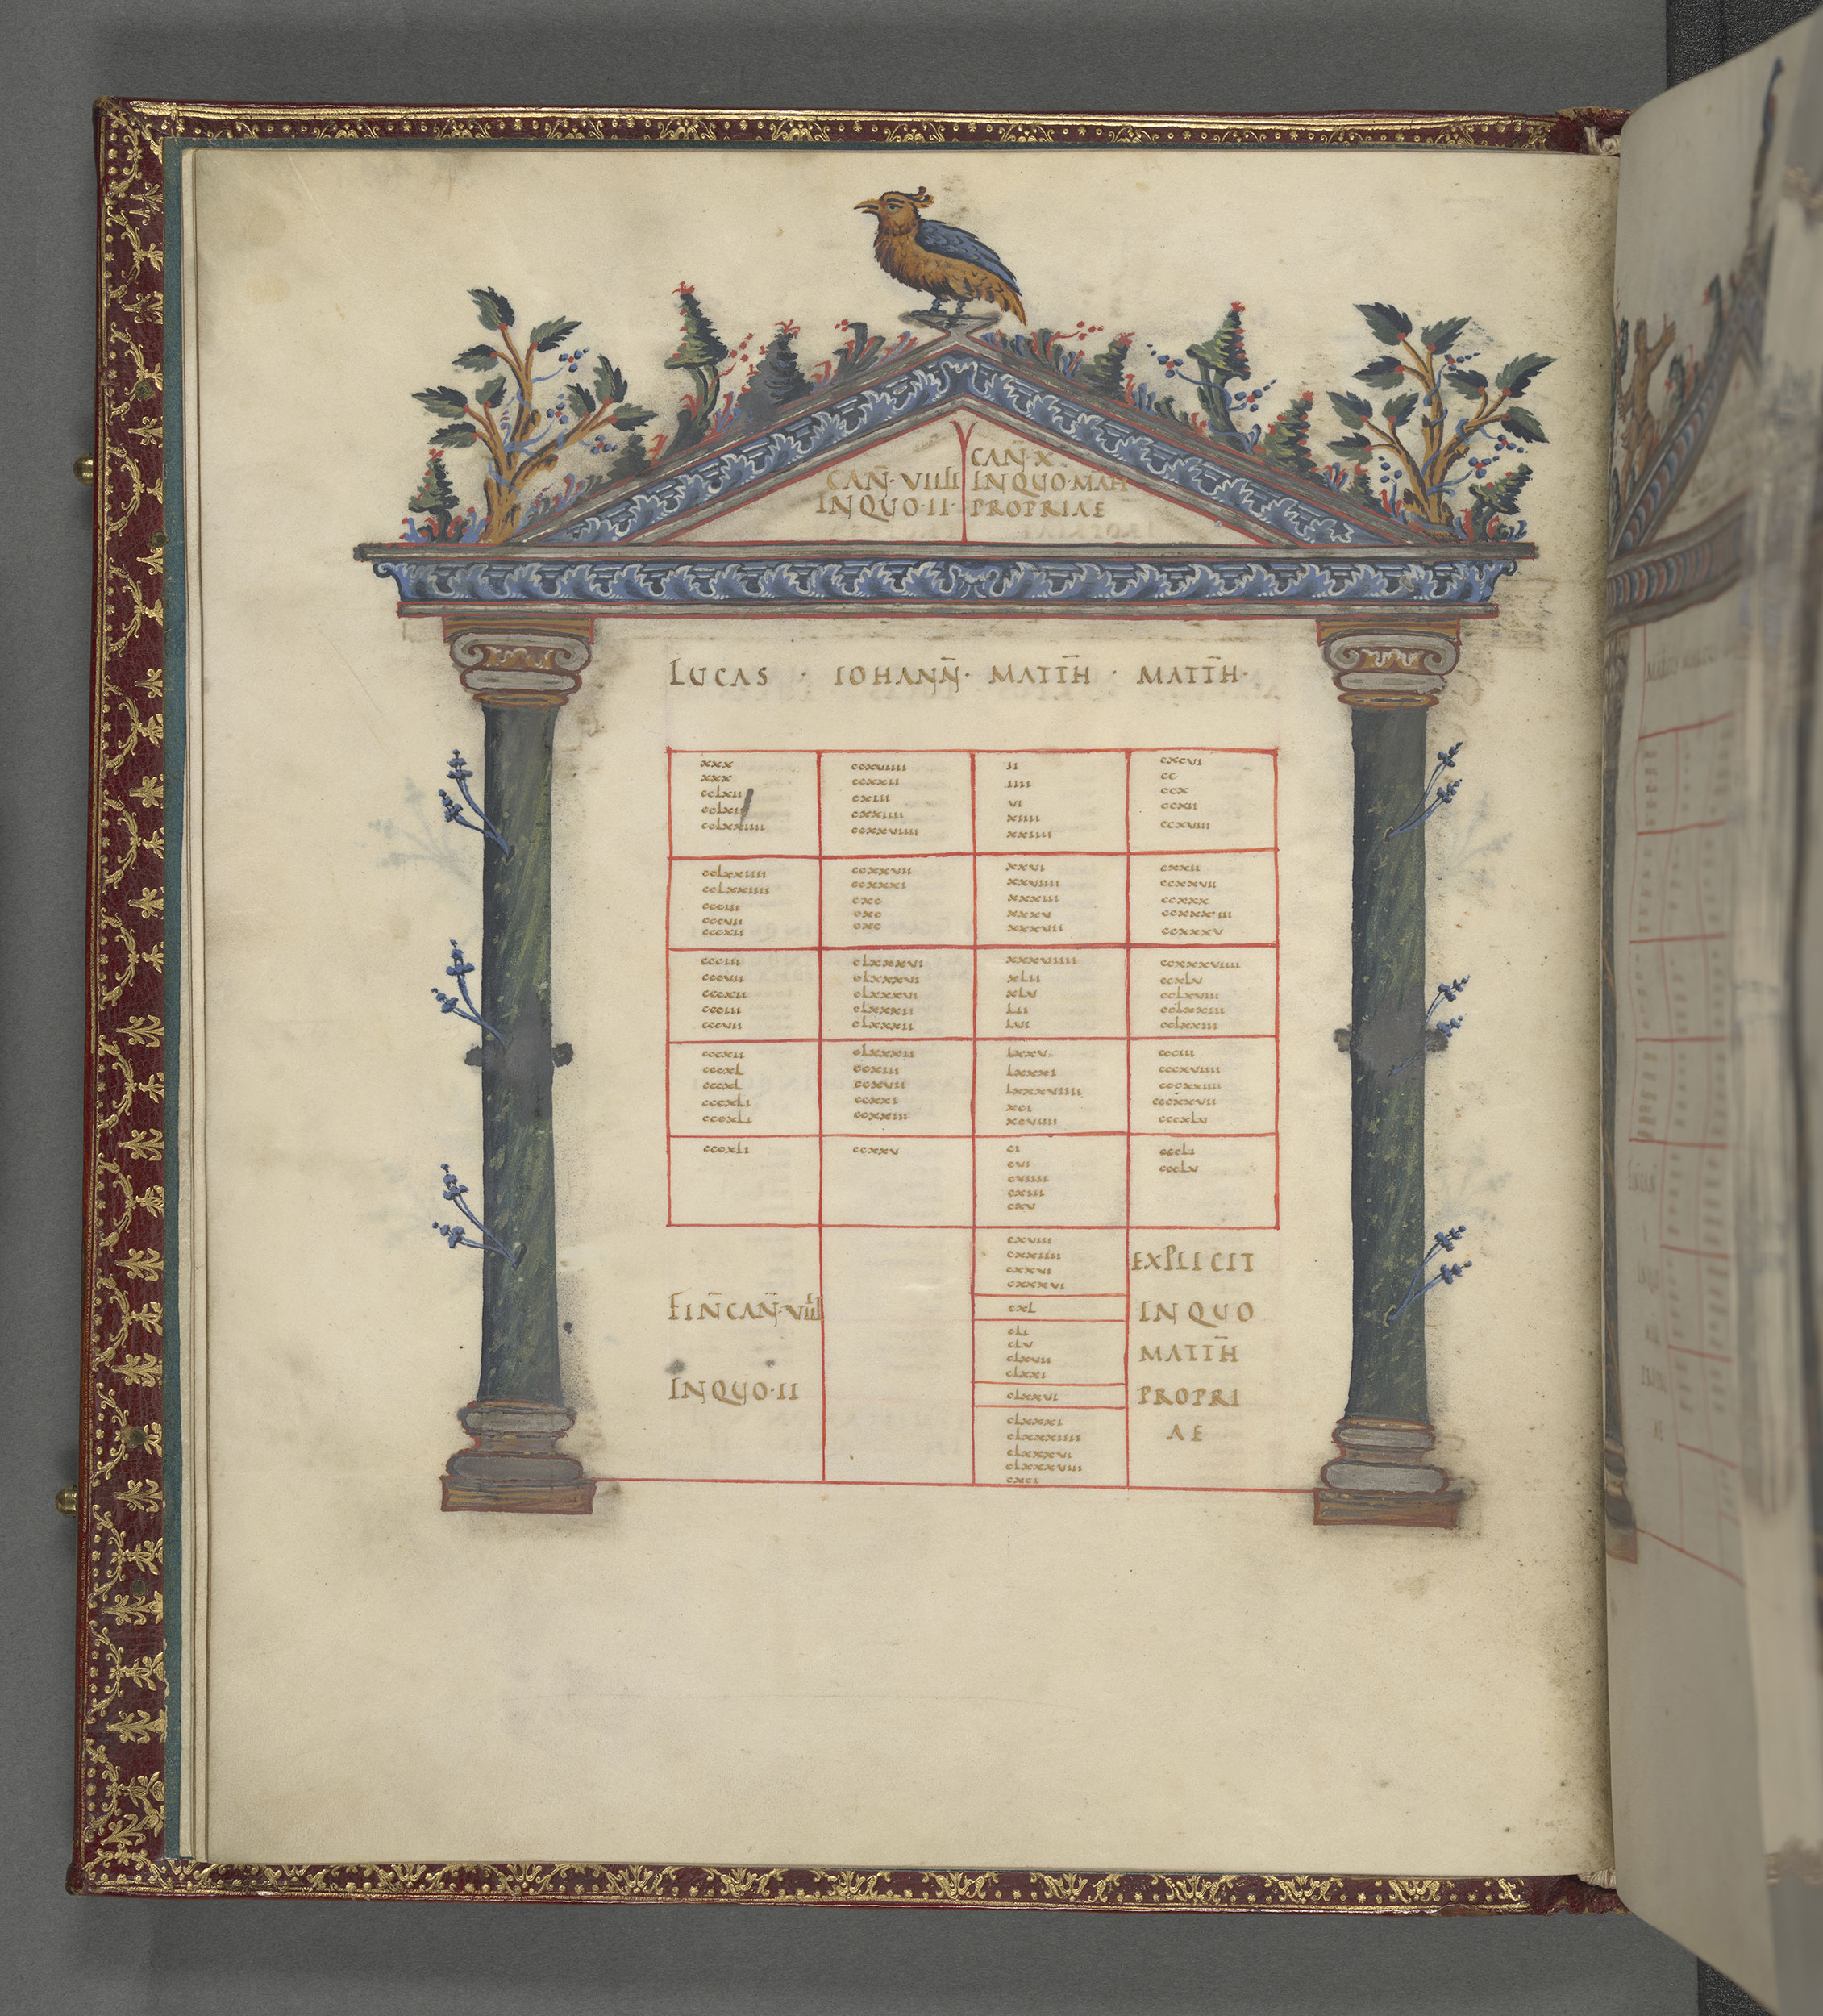 CAN̄·VIIII
INQUO·II·
CAN̄ X
INQUO·MATH
PROPRIAE
LUCAS · IOHANN̄· MATT̄H · MATT̄H·
xxx
xxx
cclxii
cclxii
cclxxiiii
cclxxiiii
cclxxiiii
ccciii
cccvii
cccxii
ccciii
cccvii
cccxii
ccciii
cccvii
cccxii
cccxl
cccxl
cccxli
cccxli
cccxli
FIN̄CAN̄·VIIII
INQUO·II
ccxviiii
ccxxii
cxiii
cxxiiii
ccxxviiii
ccxxvii
ccxxxi
cxc
cxc
cxc
clxxxvi
clxxxvi
clxxxvi
clxxxii
clxxxii
clxxxii
ccxiii
ccxvii
ccxxi
ccxxiii
ccxxv
ii
iiii
vi
xiiii
xxiiii
xxvi
xxviiii
xxxiii
xxxv
xxxvii
xxxviiii
xlii
xlv
lii
lvi
lxxv
lxxxi
lxxxviiii
xci
xcviiii
ci
cvi
cviiii
cxiii
cxv
cxviii
cxxiiii
cxxvi
cxxxvi
cxl
cli
clv
clxvii
clxxi
clxxvi
clxxxi
clxxxiiii
clxxxvi
clxxxviii
cxci
cxcvi
cc
ccx
ccxii
ccxviii
cxxii
ccxxvii
ccxxx
ccxxxiii
ccxxxv
ccxxxviiii
ccxlv
cclxviii
cclxxiii
cclxxiii
ccciii
cccxviiii
cccxxiiii
cccxxvii
cccxlv
cccli
ccclv
EXPLICIT
INQUO
MATT̄H
PROPRI
AE